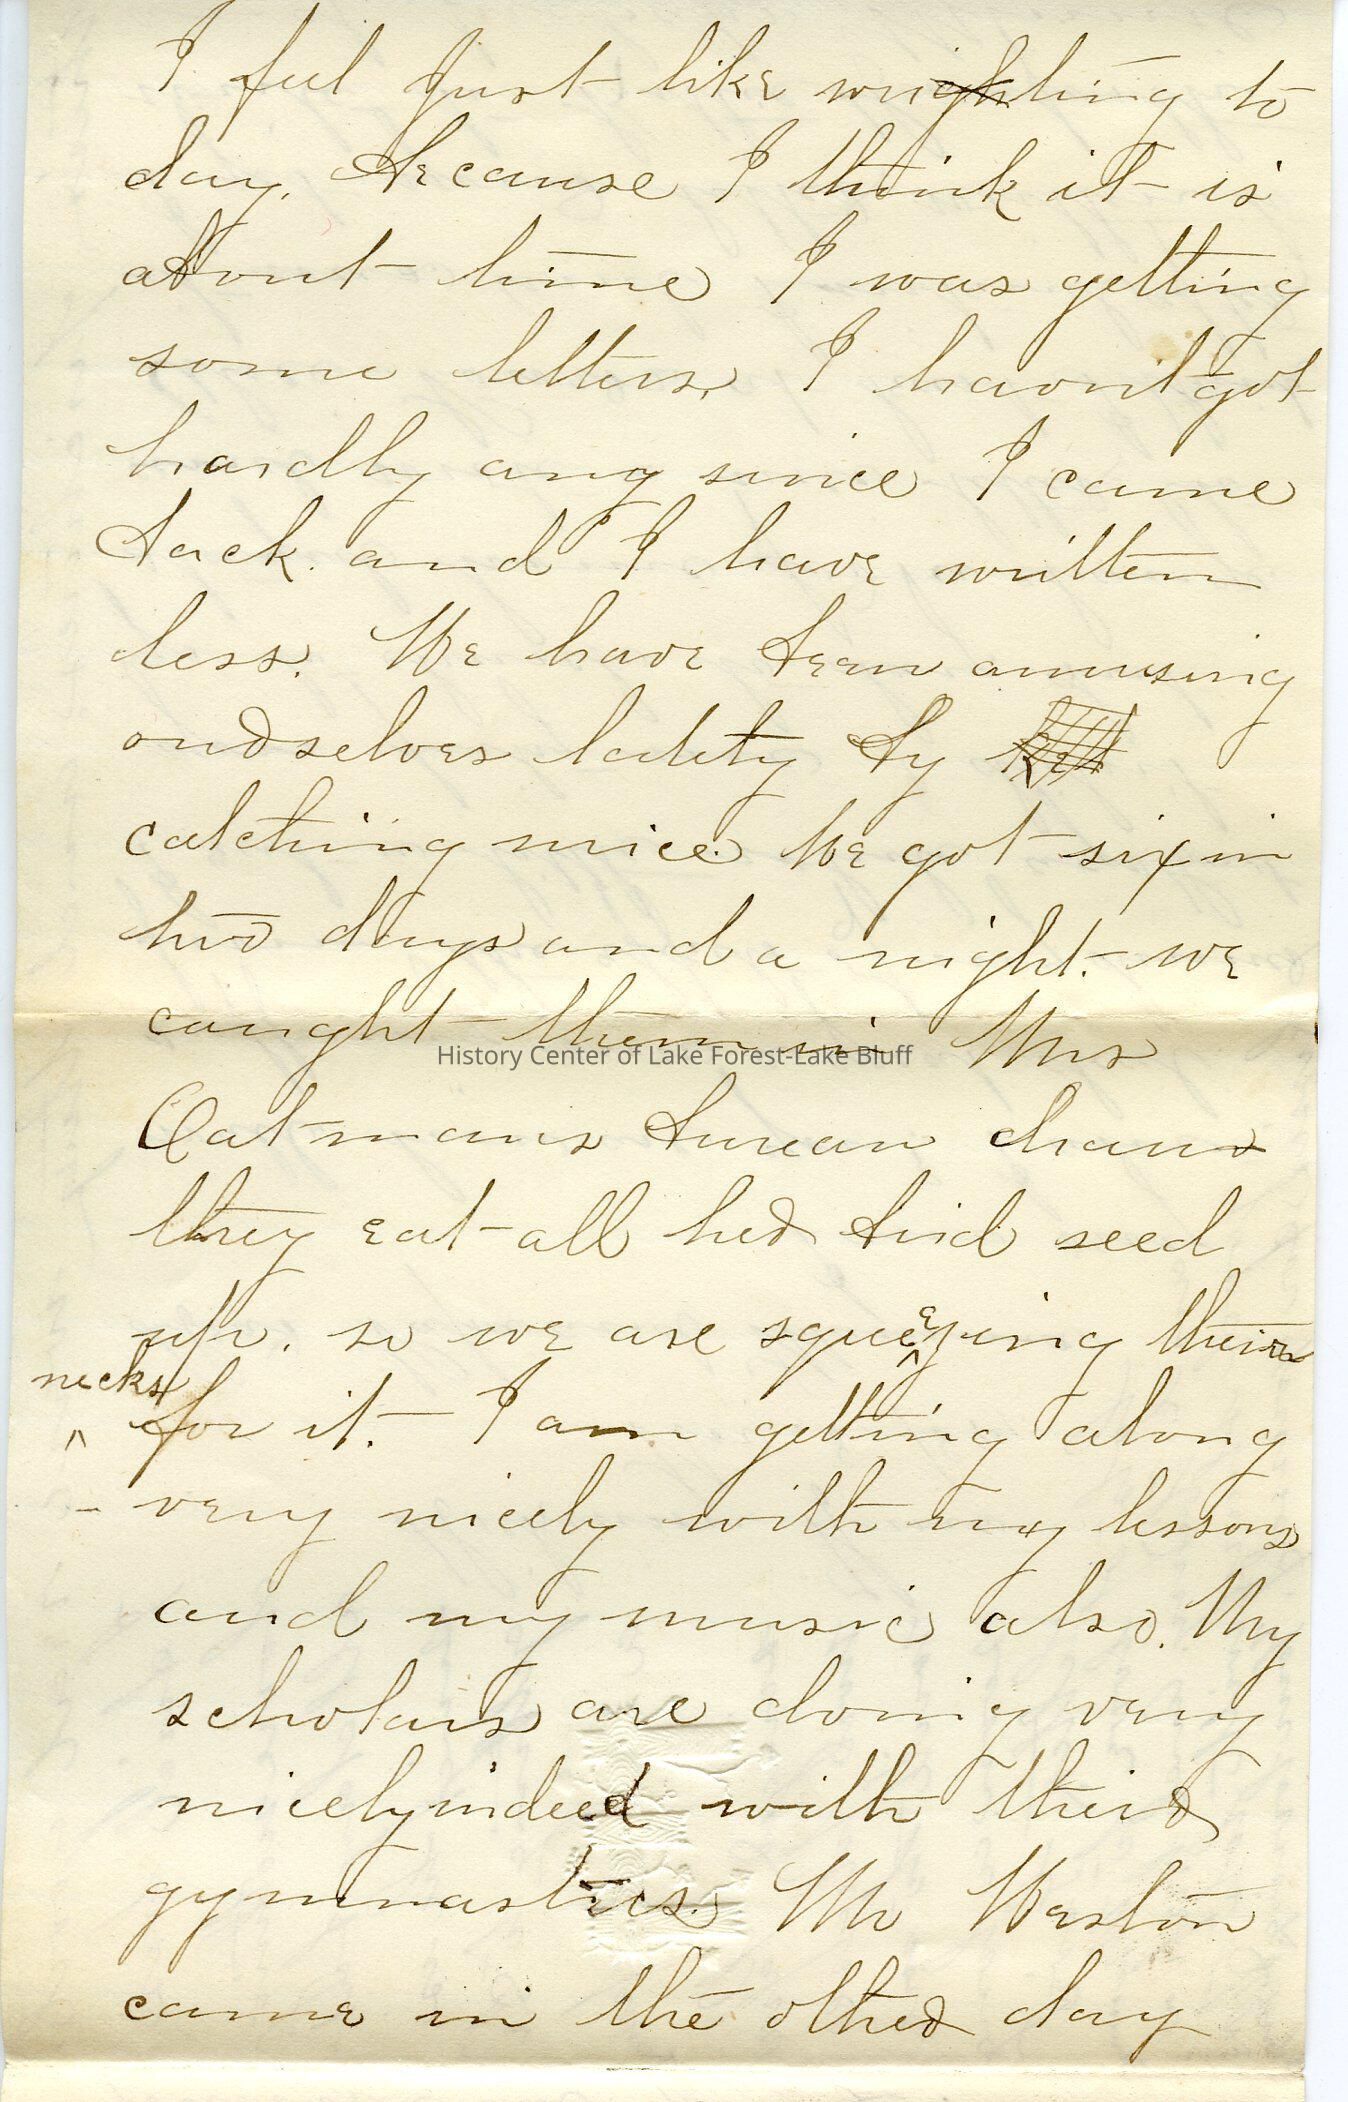 I feel just like wrighting to
day. Because I think it is
about time I was getting
some letters, I havent got
hardly any since I came
back. and I have written
less. We have been amusing
ourselves lately by
catching mice. We got six in
two days and a night. we
caught them in Mrs
History Center of Lake Forest-Lake Bluff
Oatmans bureau draws
they eat all her bird seed
up. so we are squeezing their
necks for it. I am getting along
very nicely with my lessons
and my music also. My
scholars are doing very
nicely indeed with their
gymnastics. Mr Weston
came in the other day